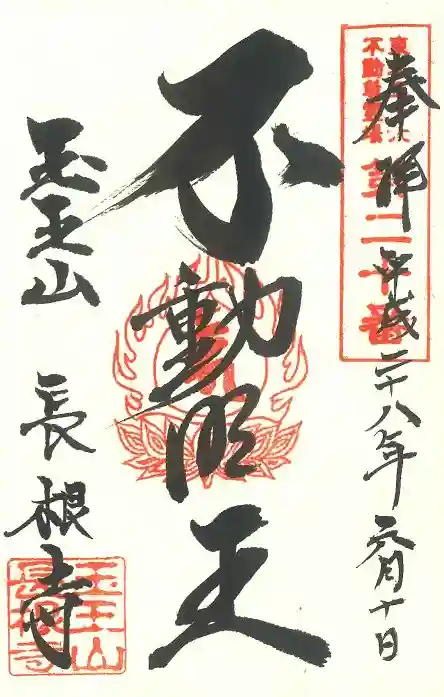 奉拝 平成二十八年 月十日
不動尊霊場
第二十番
不動明王
玉王山 長根寺
玉王山
長根寺